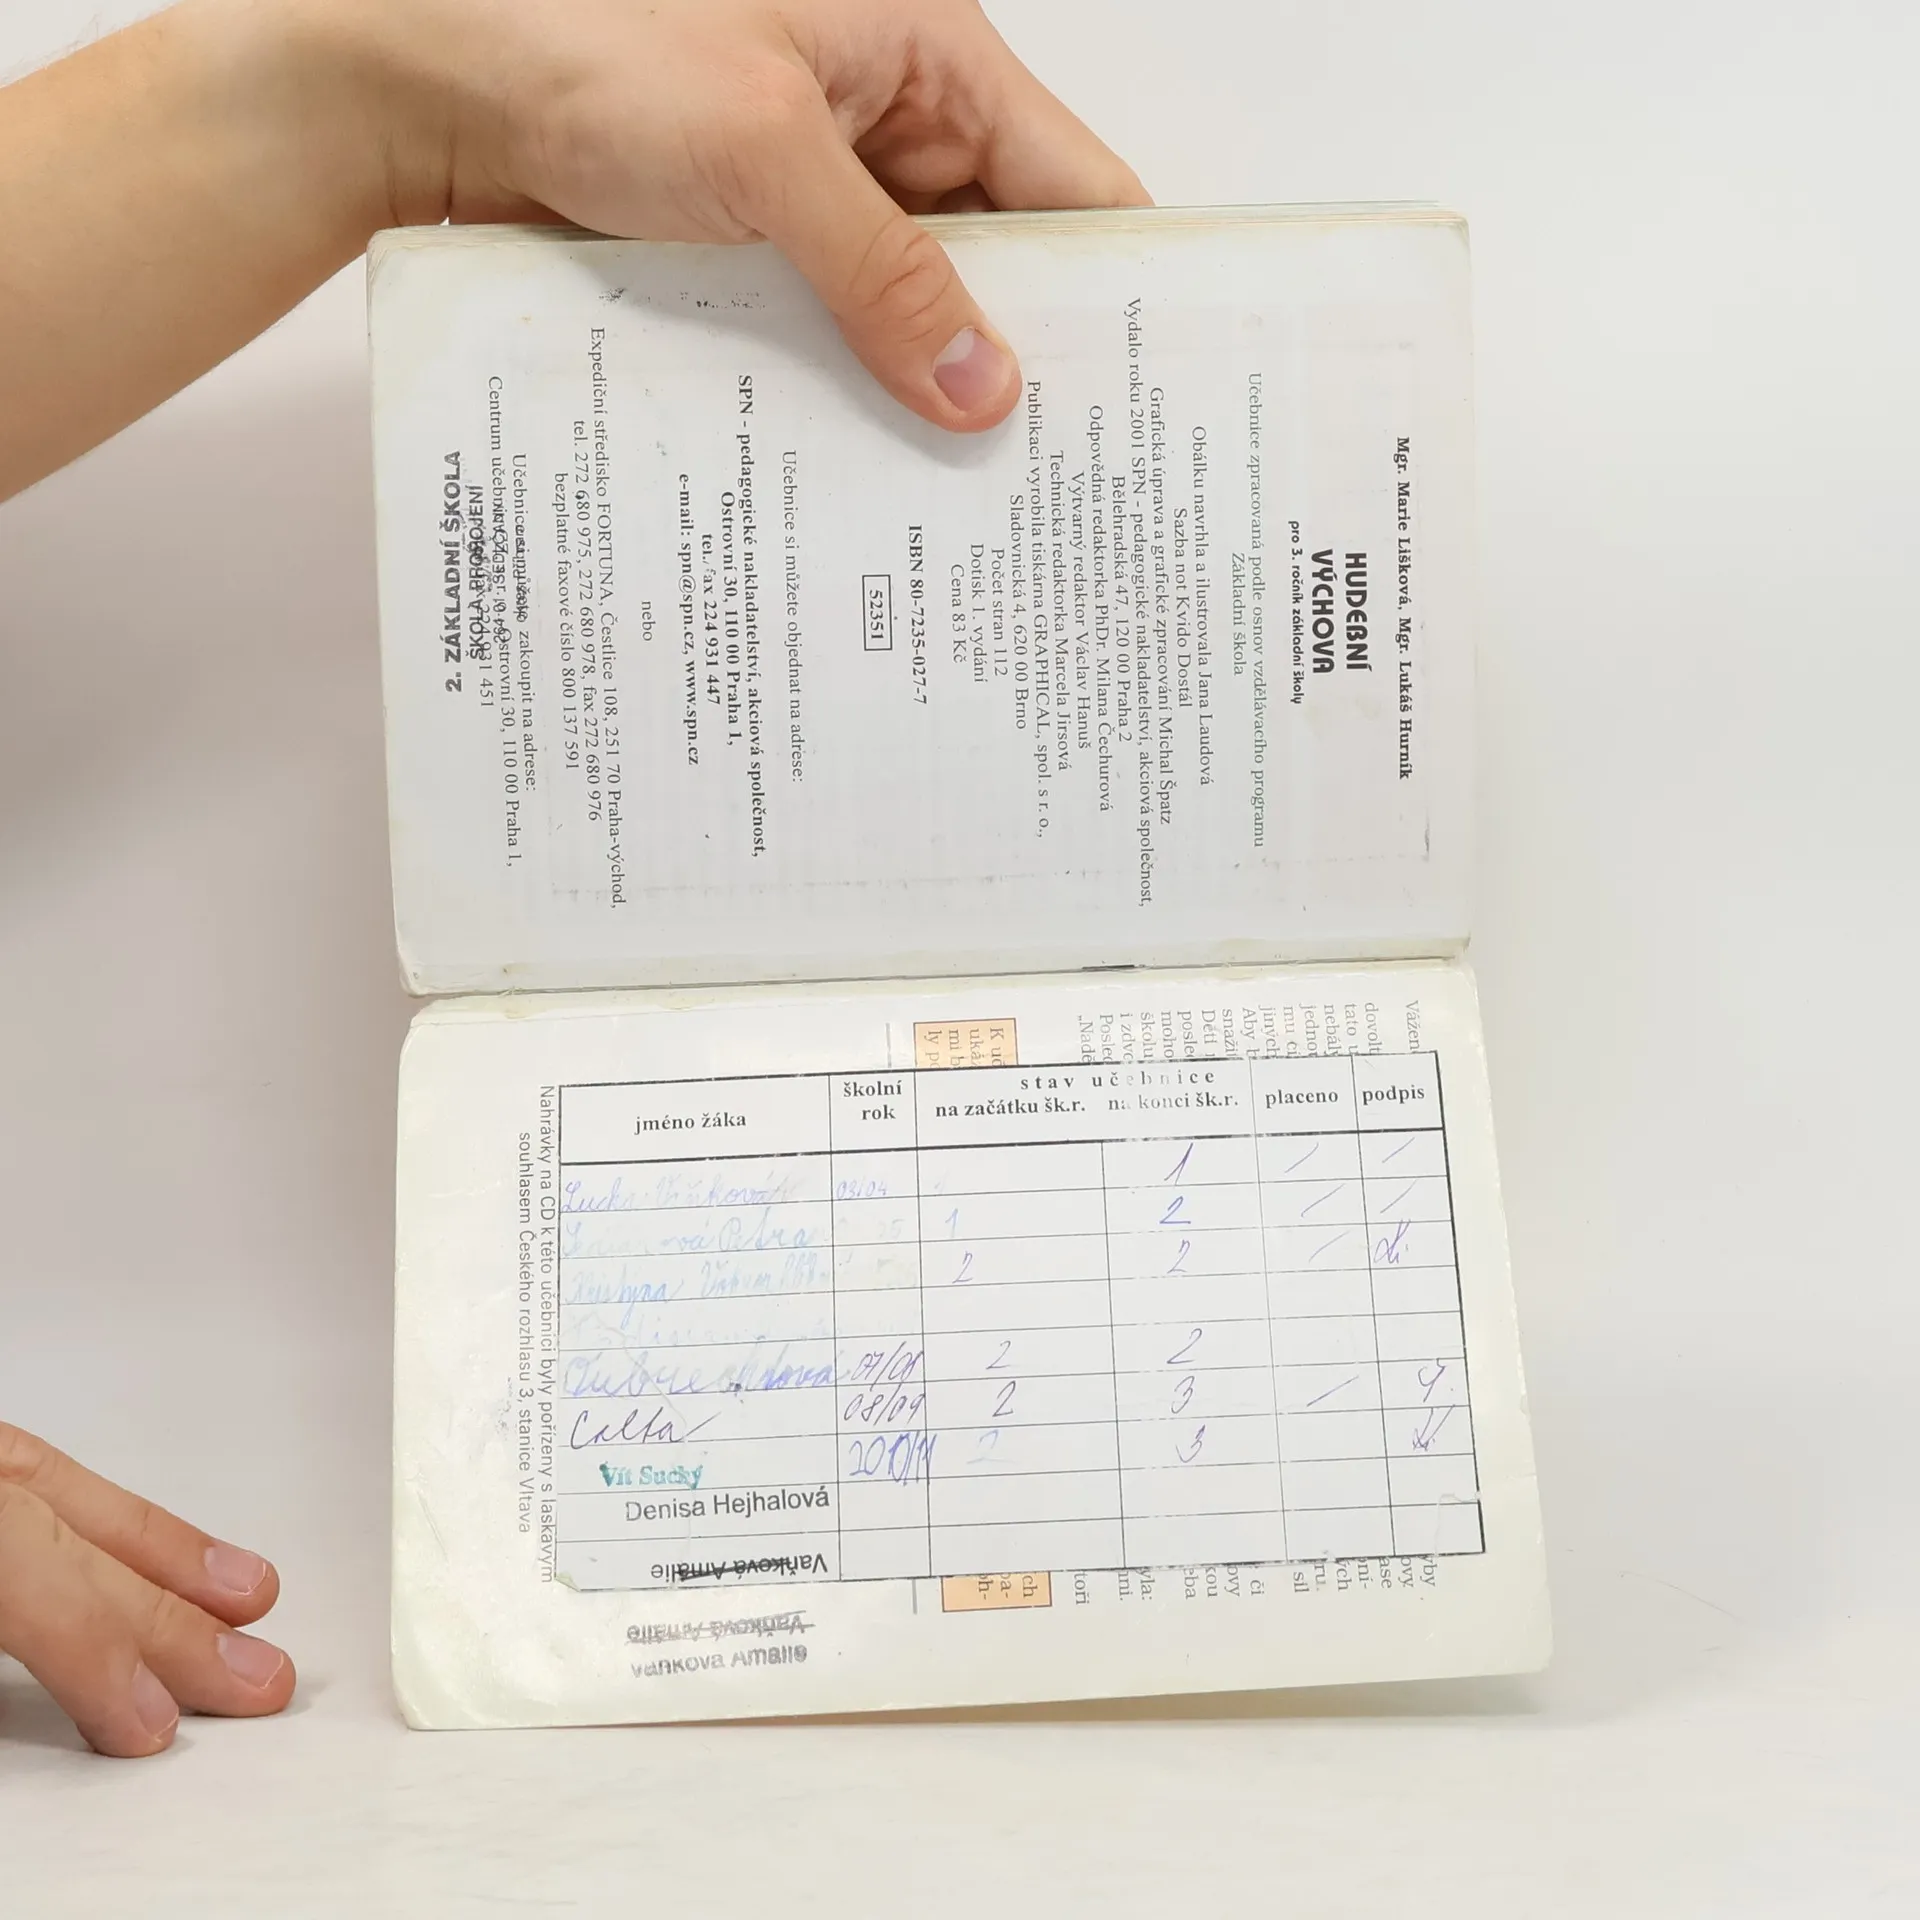 Mgr. Marie Lišková, Mgr. Lukáš Hurník
HUDEBNÍ
VÝCHOVA
pro 3. ročník základní školy
Učebnice zpracovaná podle osnov vzdělávacího programu
Základní škola
Obálku navrhla a ilustrovala Jana Laudová
Sazba not Kvido Dostál
Grafická úprava a grafické zpracování Michal Špatz
Vydalo roku 2001 SPN - pedagogické nakladatelství, akciová společnost,
Bělehradská 47, 120 00 Praha 2
Odpovědná redaktorka PhDr. Milana Čechurová
Výtvarný redaktor Václav Hanuš
Technická redaktorka Marcela Jirsová
Publikaci vyrobila tiskárna GRAPHICAL, spol. s r. o.,
Sladovnická 4, 620 00 Brno
Počet stran 112
Dotisk 1. vydání
Cena 83 Kč
ISBN 80-7235-027-7
52351
Učebnice si můžete objednat na adrese:
SPN - pedagogické nakladatelství, akciová společnost,
Ostrovní 30, 110 00 Praha 1,
tel./fax 224 931 447
e-mail: spn@spn.cz, www.spn.cz
nebo
Expediční středisko FORTUNA, Čestlice 108, 251 70 Praha-východ,
tel. 272 680 975, 272 680 978, fax 272 680 976
bezplatné faxové číslo 800 137 591
Učebnice si můžete zakoupit na adrese:
Centrum učebnic Ostrovní 30, 110 00 Praha 1,
224 931 451
2. ZÁKLADNÍ ŠKOLA
Vážen
dovolt
tato u
nebály
jednot
mu cí
jiných
Aby b
snaži
Děti
posle
moho
školu
i zdvo
Posled
„Nadě
K uč
uká
mi b
ly po
jméno žáka školní rok stav učebnice na začátku šk.r. na konci šk.r. placeno podpis
03/04 1
Petra 1 2
Kristýna 2 2
07/08 2 2
Calta 08/09 2 3
Vít Suchý 2010/11 2 3
Denisa Hejhalová
Vaňková Amálie
Vaňková Amálie
Vaňková Amálie
Nahrávky na CD k této učebnici byly pořízeny s laskavým
souhlasem Českého rozhlasu 3, stanice Vltava